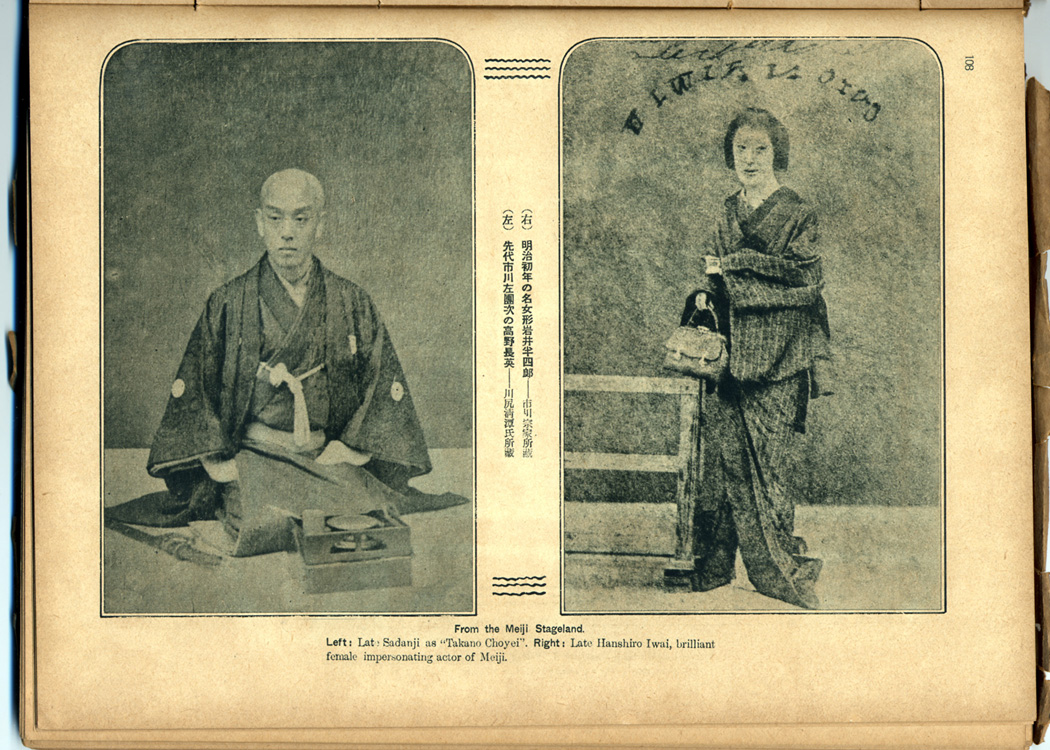 108
(右) 明治初年の名女形岩井半四郎——市川宗家所蔵
(左) 先代市川左團次の高野長英——川尻清潭氏所蔵
From the Meiji Stageland.
Left: Late Sadanji as "Takano Choyei". Right: Late Hanshiro Iwai, brilliant
female impersonating actor of Meiji.